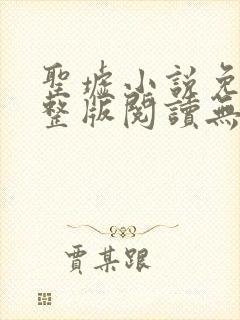 聖墟小說免
整版閱讀無
賈某跟